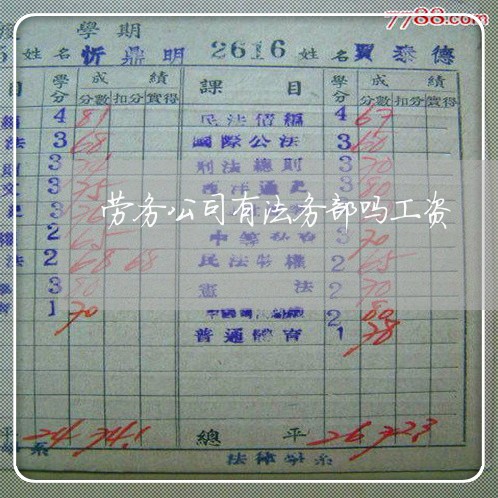 7788.com
學期
5 姓名 忻鼎明 2616 姓名 賈泰德
目 學分 成績 課目 學分 成績
分數 扣分 實得 分數 扣分 實得
4 81 民法債編 4 67
法 3 68 國際公法 3 60
3 刑法總則 3 70
3 75 3 80
劳务公司有法务部吗工资
2 65 3 70
法 2 68 68 民法物權 2 65
3 80 憲法 2 70
育 1 70 2 80
普通體育 1 78
平 24 74.1 總平 26 72.3
系 法律學系